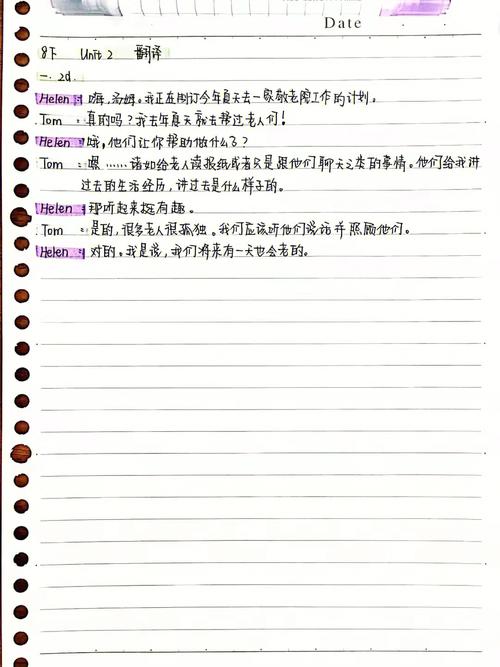 Date
8下 Unit 2 翻译
一. 2d.
Helen : 嗨,汤姆。我正在制订今年夏天去一家敬老院工作的计划。
Tom : 真的吗?我去年夏天就去帮过老人们!
Helen : 哦,他们让你帮助做什么了?
Tom : 嗯……诸如给老人读报纸或者只是跟他们聊天之类的事情。他们给我讲
过去的生活经历,讲过去是什么样子的。
Helen : 那听起来挺有趣。
Tom : 是的,很多老人很孤独。我们应该听他们说话并照顾他们。
Helen : 对的。我是说,我们将来有一天也会老的。